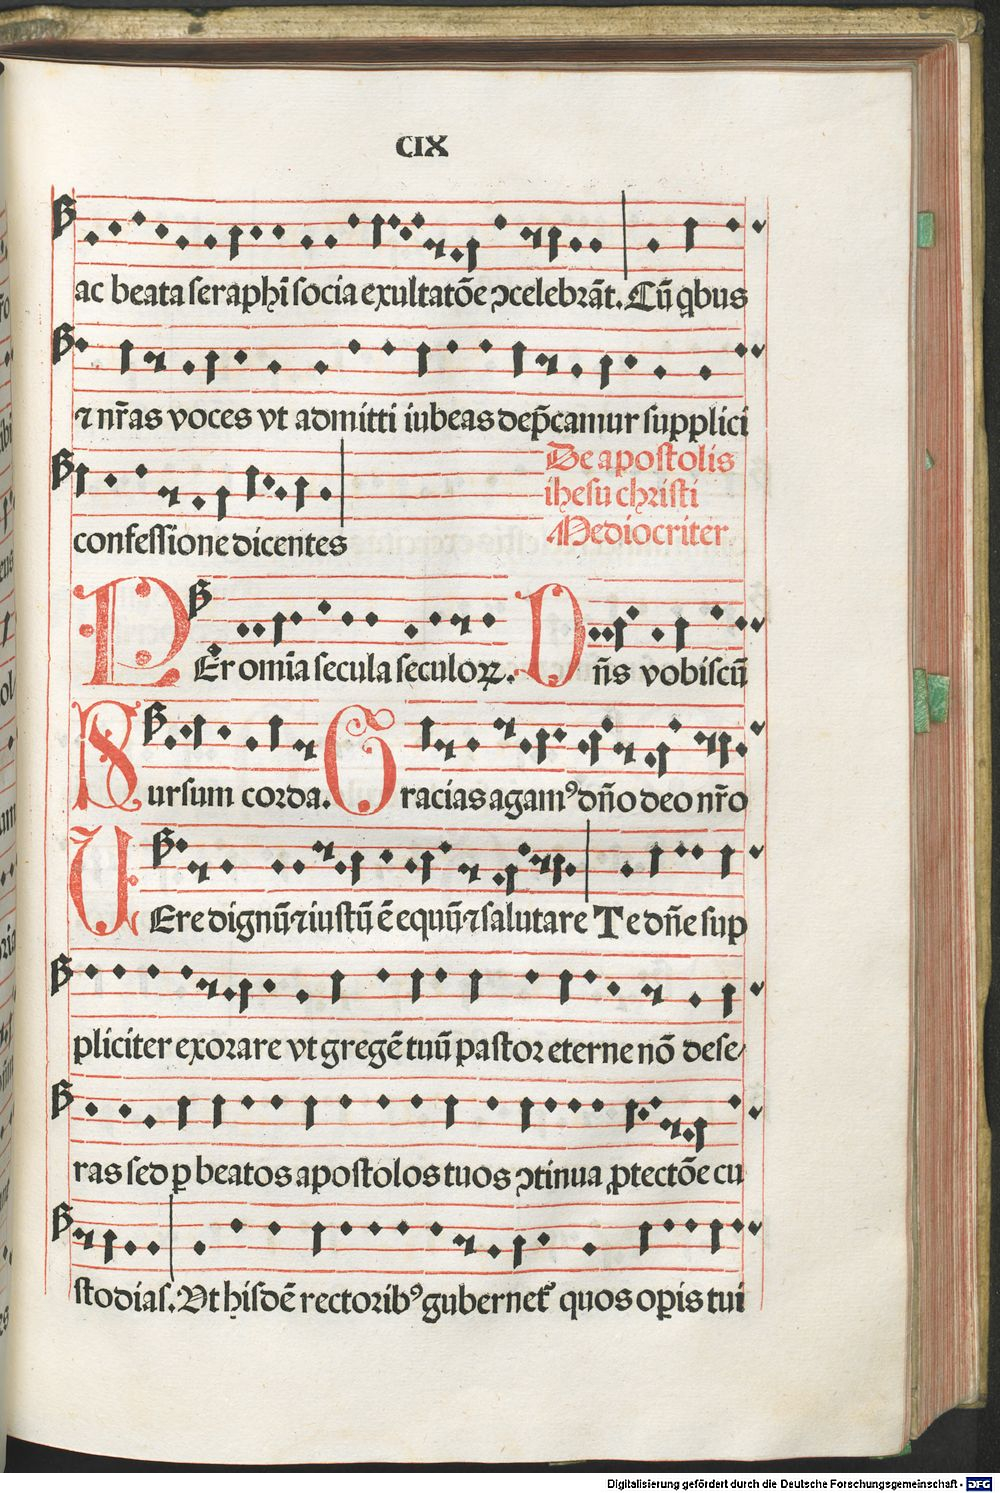 CIX
ac beata seraphī socia exultatōe ↄcelebrāt. Cū qbus
⁊ nr̄as voces vt admitti iubeas dep̄camur supplici
De apostolis
ihesu christi
Mediocriter
confessione dicentes
PEr om̄ia secula seculoꝝ. Dn̄s vobiscū
Sursum corda. Gracias agamꝰ dn̄o deo nr̄o
VEre dignū ⁊ iustū ē equū ⁊ salutare Te dn̄e sup
pliciter exorare vt gregē tuū pastor eterne nō dese/
ras sed ꝑ beatos apostolos tuos ↄtinua ꝓtectōe cu
stodias. Vt hisdē rectoribꝰ gubernet᷑ quos oꝑis tui
Digitalisierung gefördert durch die Deutsche Forschungsgemeinschaft - DFG